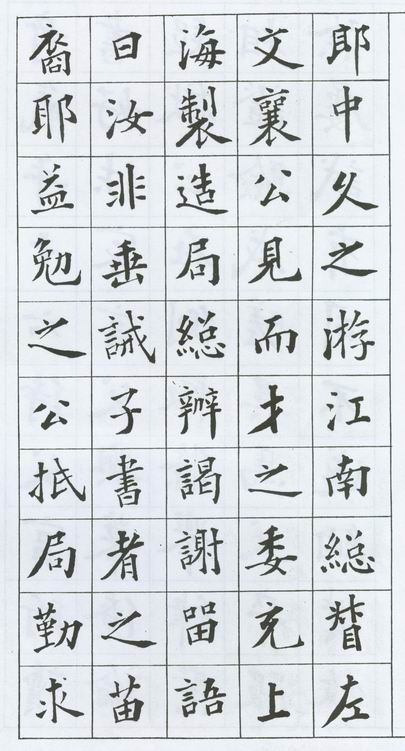 郎中久之游江南総督左
文襄公見而才之委充上
海製造局総辦謁謝畱語
曰汝非垂誡子書者之苗
裔耶益勉之公抵局勤求